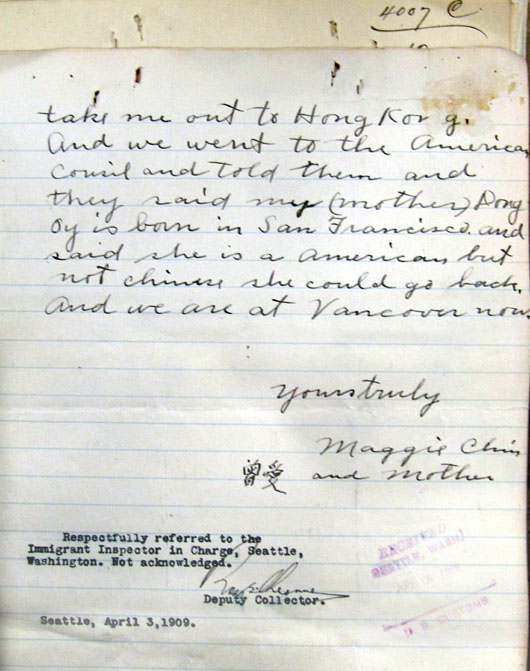 4007 C
take me out to Hong Kong.
And we went to the American
Counsil and told them and
they said my (mother) Dong
Oy is born in San Francisco. and
said she is a american but
not chinese she could go back.
And we are at Vancover now.
yours truly
Maggie Chin
曾愛 and Mother
Respectfully referred to the
Immigrant Inspector in Charge, Seattle,
Washington. Not acknowledged.
Deputy Collector.
Seattle, April 3,1909.
RECEIVED
SEATTLE, WASH.
U. S. CUSTOMS